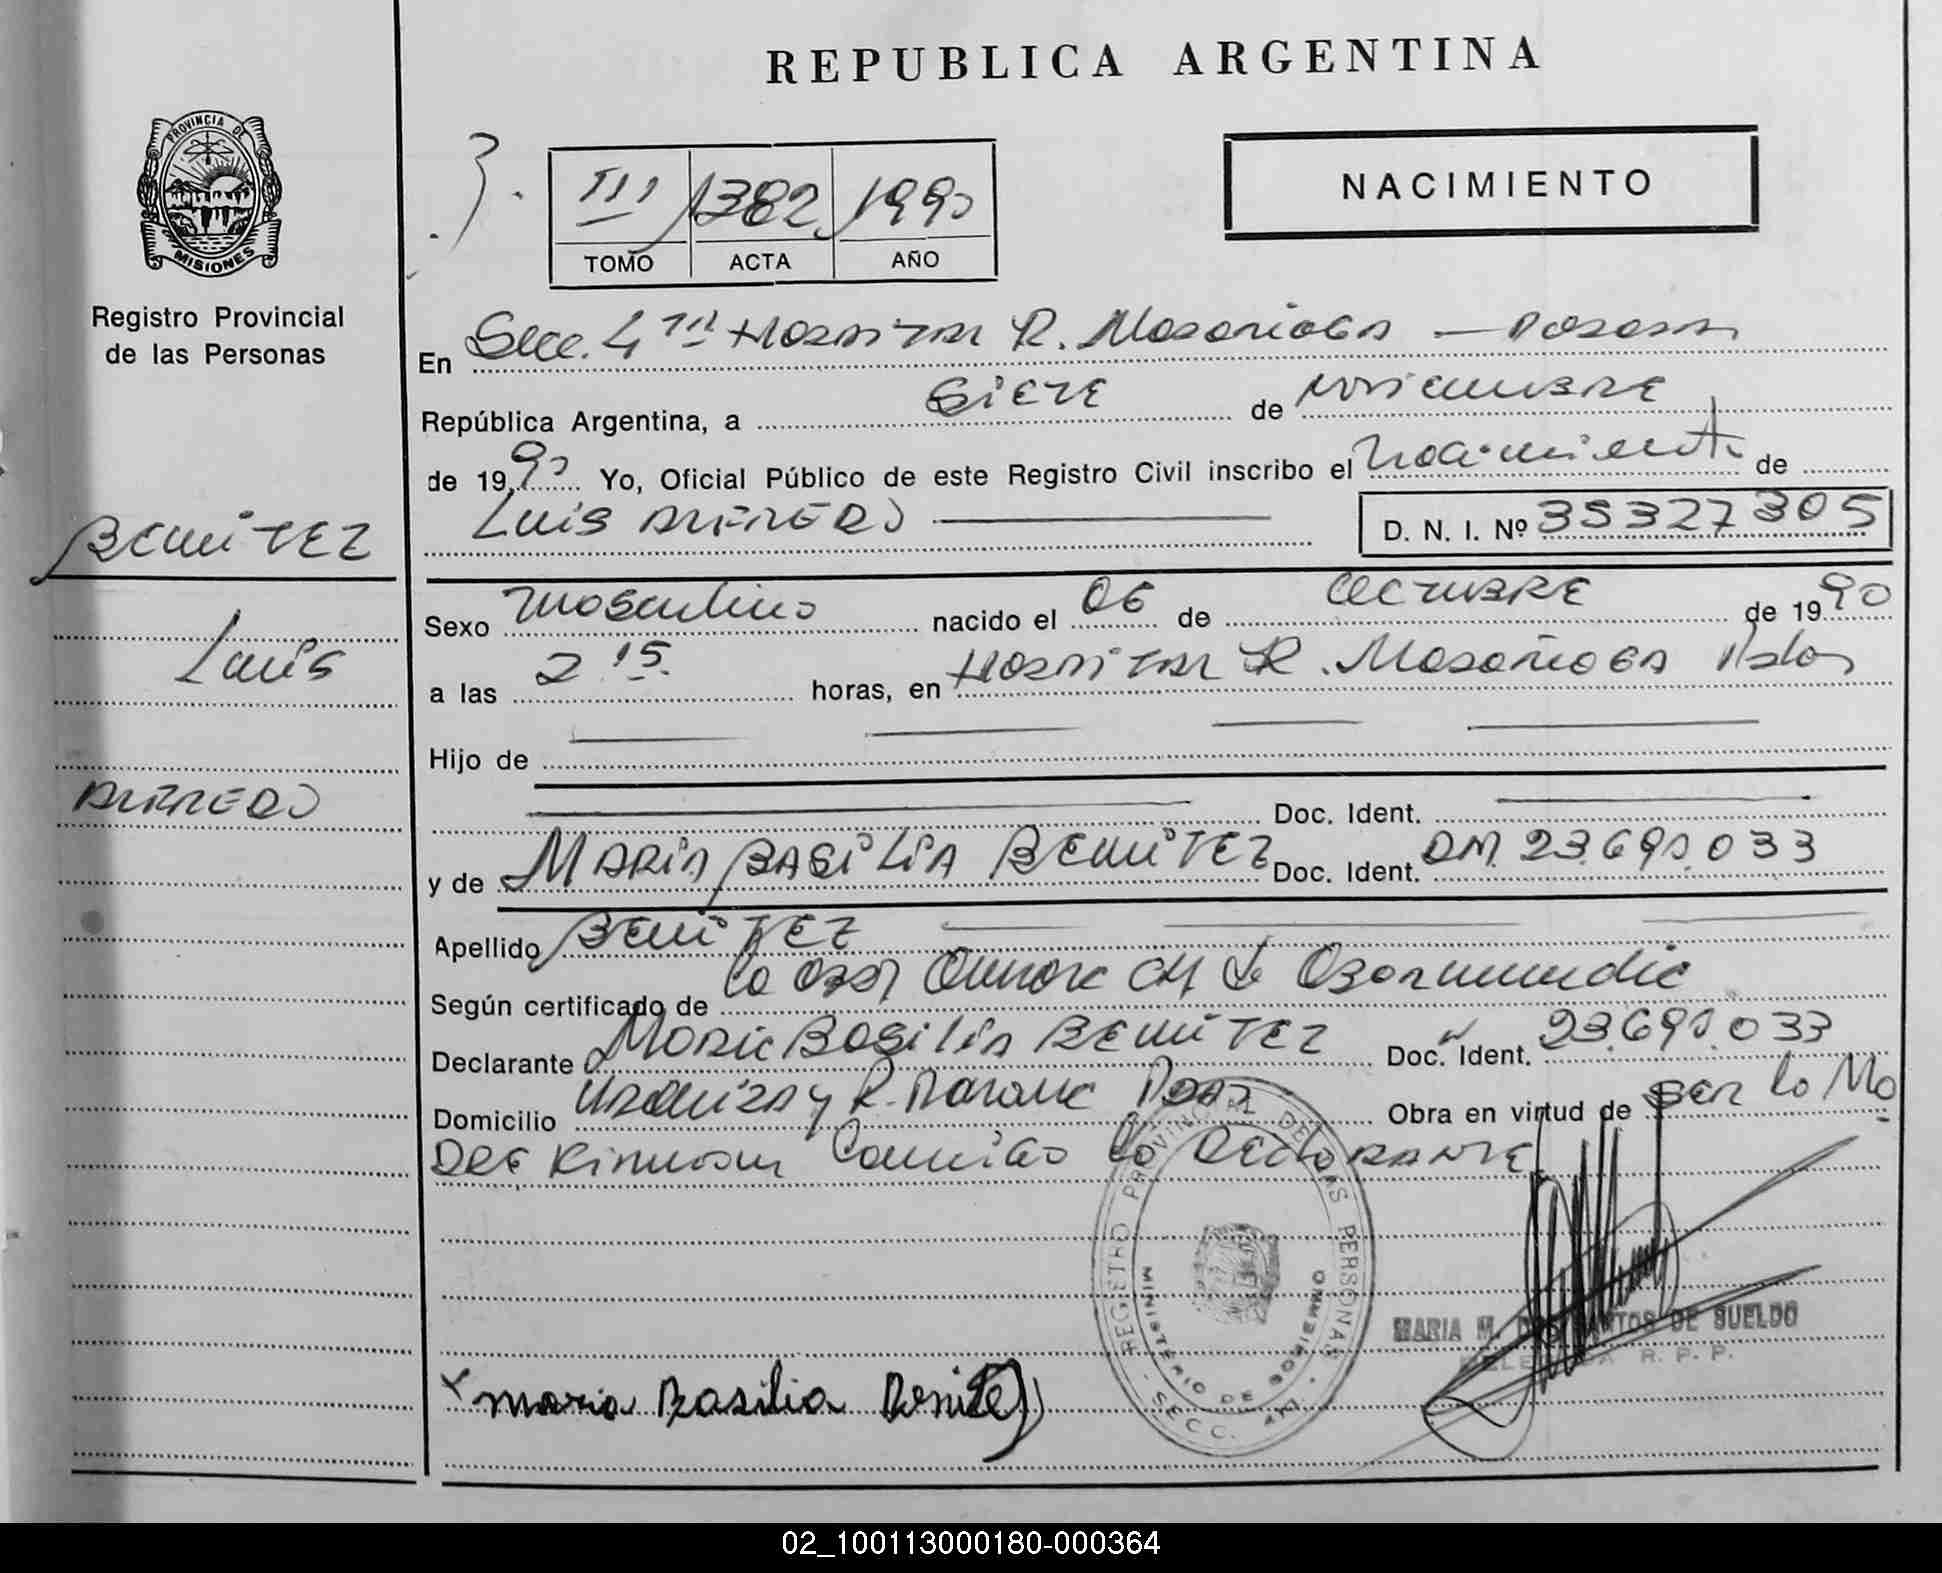 REPUBLICA ARGENTINA
PROVINCIA DE
MISIONES
Registro Provincial
de las Personas
3.
III 1382 1990
TOMO ACTA AÑO
NACIMIENTO
En Secc. 4ta Hospital R. Madariaga — Posadas
República Argentina, a SIETE de NOVIEMBRE
de 1990 Yo, Oficial Público de este Registro Civil inscribo el Nacimiento de
LUIS ALFREDO
D. N. I. Nº 35327305
BENITEZ
Luis
ALFREDO
Sexo Masculino nacido el 06 de OCTUBRE de 1990
a las 2 15 horas, en HOSPITAL R. Madariaga Pdas
Hijo de
Doc. Ident.
y de MARIA BASILIA BENITEZ Doc. Ident. DNI. 23.690.033
Apellido BENITEZ
Según certificado de la Obst
Declarante Maria Basilia BENITEZ Doc. Ident. 23.690.033
Domicilio Urquiza y R. Pdas Obra en virtud de SER la Ma
DRE Firman Conmigo la DECLARANTE
REGISTRO PROVINCIAL DE LAS PERSONAS
MINISTERIO DE GOBIERNO
SECC. 4ta.
MARIA M. DOS SANTOS DE SUELDO
DELEGADA R. P. P.
x maria Basilia Benitez
02_100113000180-000364